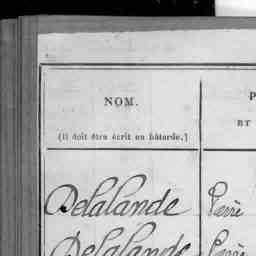 NOM.
(Il doit être écrit en bâtarde.)
P
ET
Delalande Pierre
Delalande Pierre